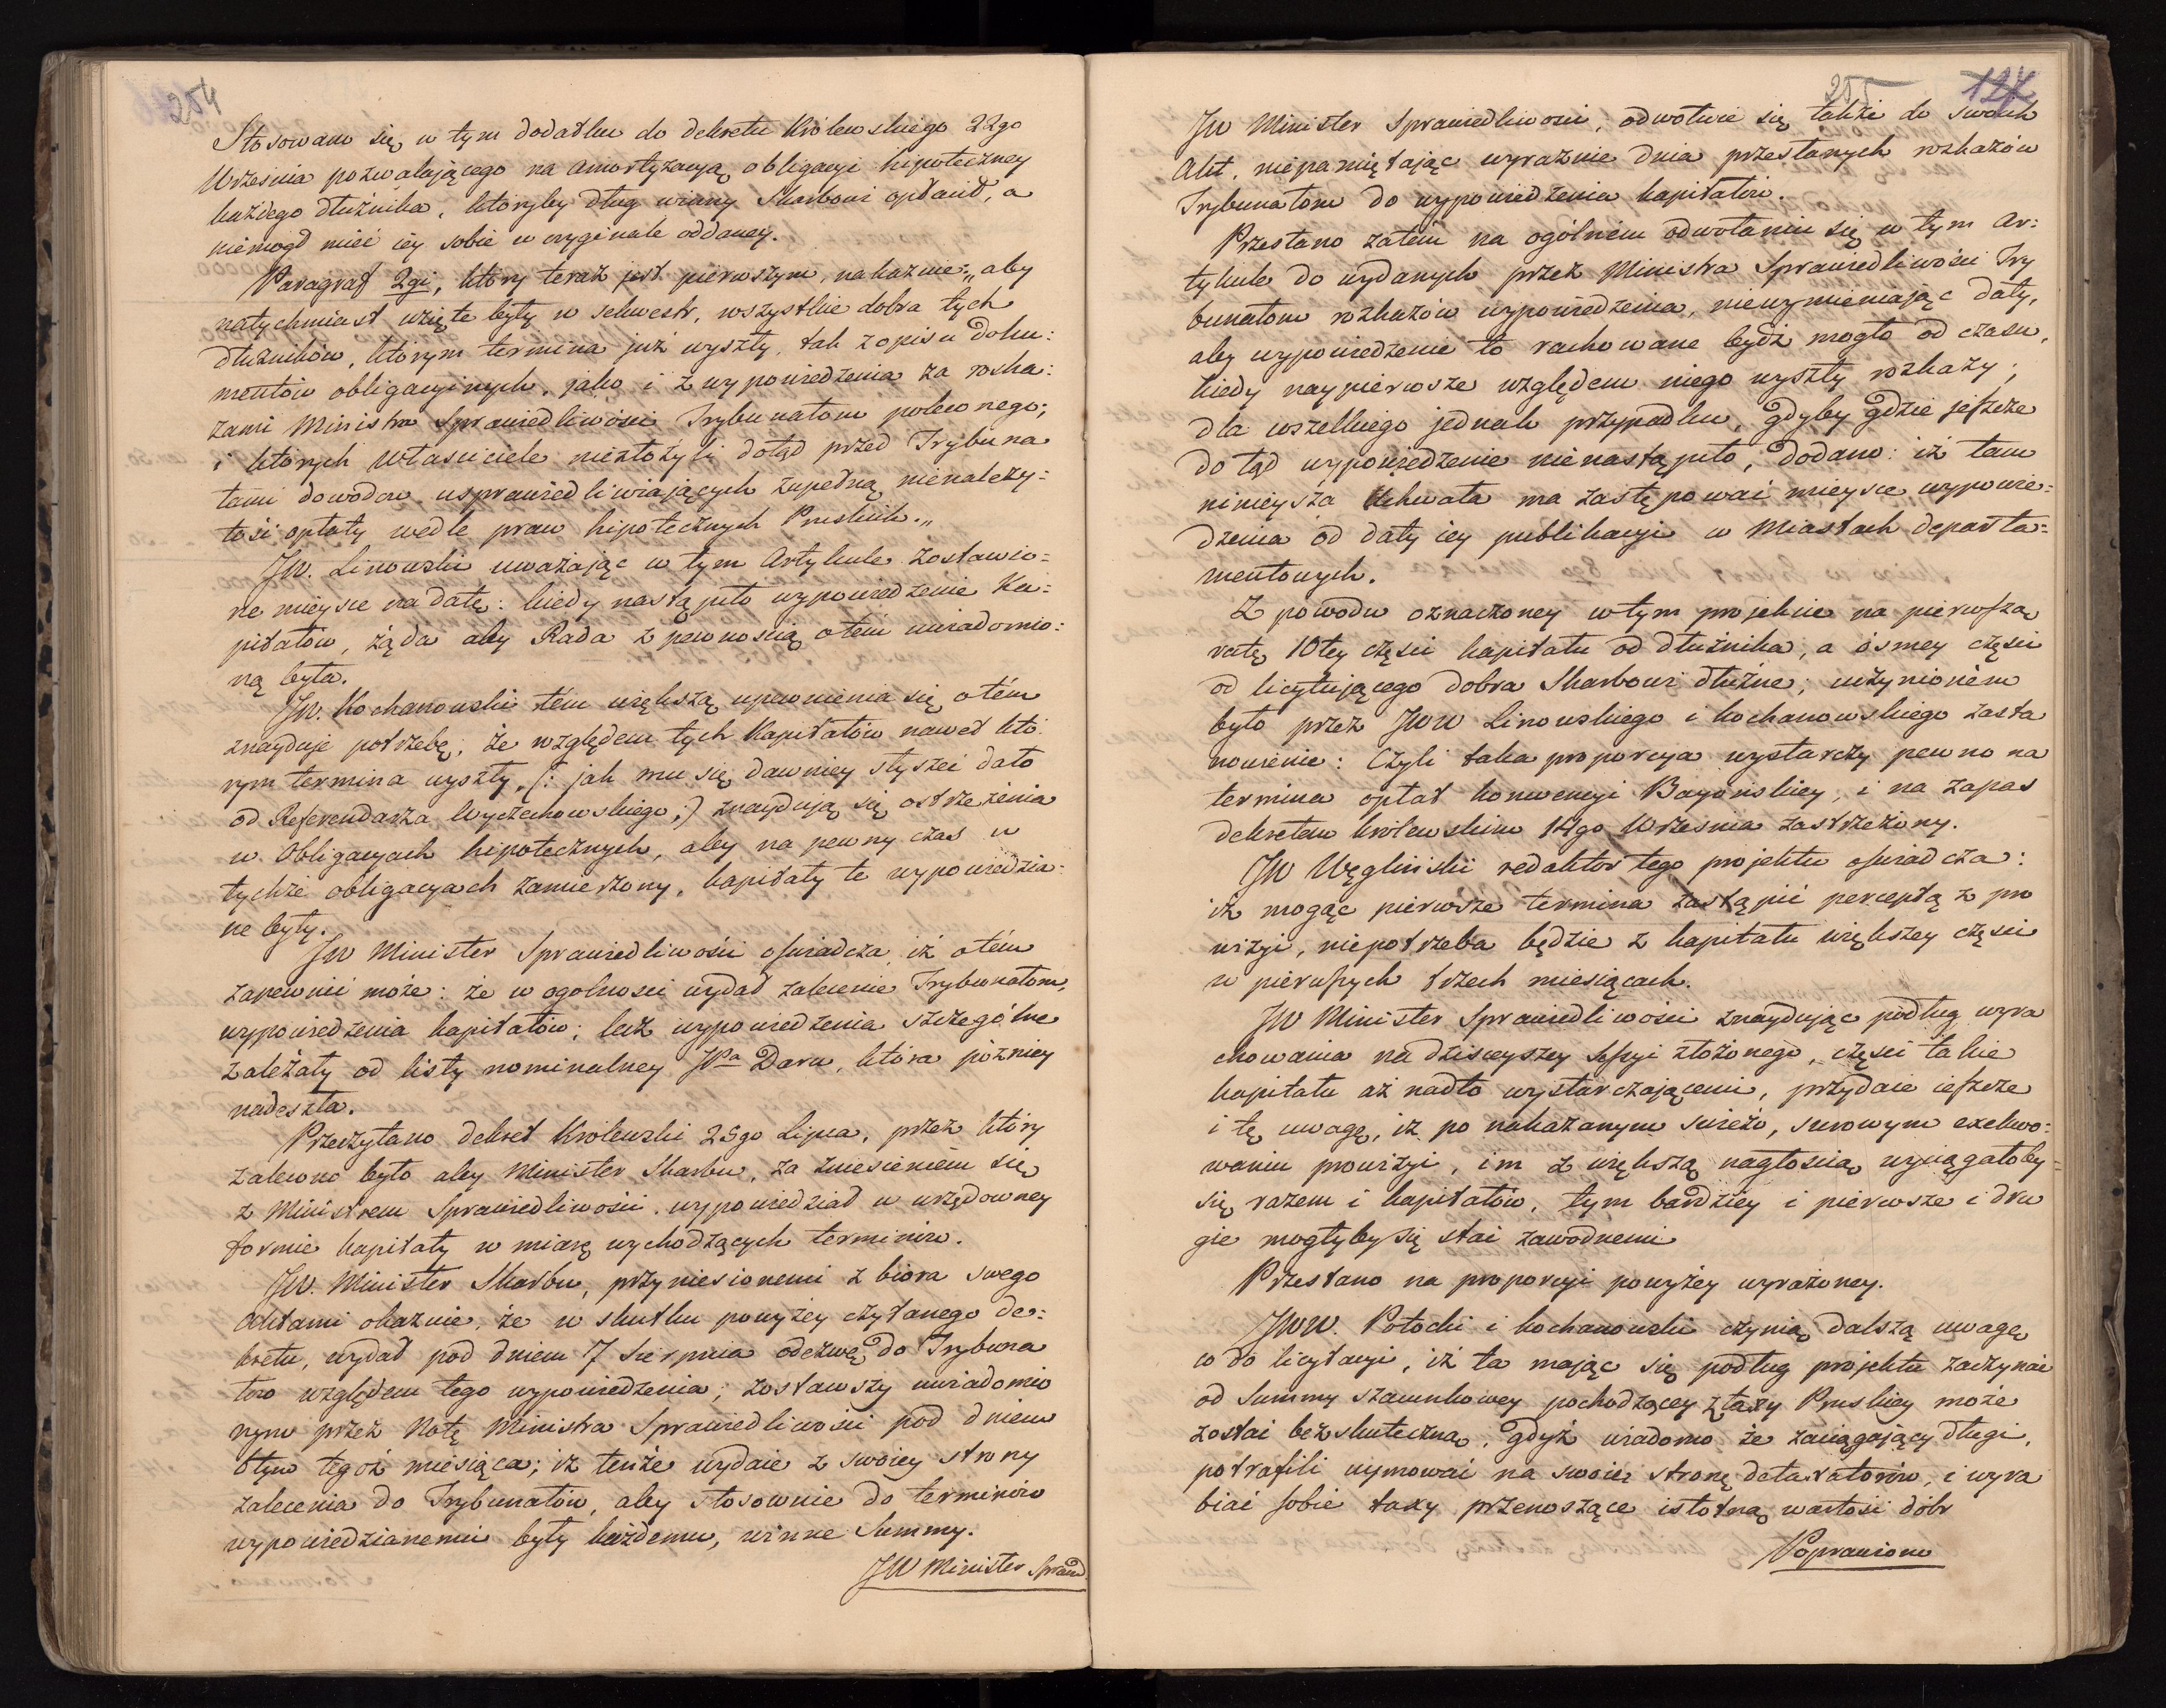 254
Stosowano się w tym dodatku do dekretu Królewskiego 22go
Września pozwalającego na amortyzacyą obligacyi hipoteczney
każdego dłużnika, któryby dług winny Skarbowi opłacił, a
niemógł mieć iey sobie w oryginale oddaney.
Paragraf 2gi, który teraz jest pierwszym, nakazuie: „aby
natychmiast wzięte były w sekwestr, wszystkie dobra tych
dłużników, którym termina już wyszły, tak z opisu doku:
mentów obligacyinych, jako i z wypowiedzenia za roska:
zami Ministra Sprawiedliwości Trybunałom poleconego;
i których właściciele niezłożyli dotąd przed Trybuna
łami dowodów usprawiedliwiających zupełną nienależy:
tość opłaty wedle praw hipotecznych Pruskich.„
JW. Linowski uważając w tym Artykule zostawio=
ne mieysce na datę: kiedy nastąpiło wypowiedzenie Ka:
pitałów, żąda aby Rada z pewnością o tém uwiadomio:
ną była.
JW. Kochanowski tém większą upewnienia się o tém
znayduje potrzebę, że względem tych Kapitałów nawet któ
rym termina wyszły, (: jak mu się dawniey słyszeć dało
od Referendarza Wyczechowskiego ;) znaydują się ostrzeżenia
w Obligacyach hipotecznych, aby na pewny czas w
tychże obligacyach zamierzony, kapitały te wypowiedzia:
ne były.
JW Minister Sprawiedliwości oświadcza iż o tém
zapewnić może: że w ogolności wydał zalecenie Trybunałom,
wypowiedzenia kapitałów; lecz wypowiedzenia szczególne
zależały od listy nominalney JPa Daru, która późniey
nadeszła.
Przeczytano dekret Królewski 25go Lipca, przez który
zalecono było aby Minister Skarbu, za zniesieniem się
z Ministrem Sprawiedliwości, wypowiedział w urzędowney
formie kapitały w miarę wychodzących terminów.
JW. Minister Skarbu, przyniesionemi z biora swego
Aktami okazuie, że w skutku powyżey czytanego de=
kretu, wydał pod dniem 7 Sierpnia odezwę do Trybuna
łow względem tego wypowiedzenia; zostawszy uwiadomio
nym przez Notę Ministra Sprawiedliwości pod dniem
6tym tegoż miesiąca; iż tenże wydaie z swoiey strony
zalecenia do Trybunałów, aby stosownie do terminów
wypowiedzianemi były każdemu, winne Summy.
JW Minister Spraw
255 127
JW Minister Sprawiedliwości, odwołuie się także do swoich
Akt, niepamiętając wyraźnie dnia przesłanych rozkazów
Trybunałom do wypowiedzenia kapitałów.
Przestano zatém na ogólném odwołaniu się w tym Ar:
tykule do wydanych przez Ministra Sprawiedliwości Try
bunałom rozkazów wypowiedzenia, niewymieniając daty,
aby wypowiedzenie to rachowane bydź mogło od czasu,
kiedy naypierwsze względem niego wyszły rozkazy;
dla wszelkiego jednak przypadku, gdyby gdzie jeszcze
dotąd wypowiedzenie nienastąpiło, dodano: iż tam
ninieysza Uchwała ma zastępować mieysce wypowie=
dzenia od daty iey publikacyi w Miastach departa=
mentowych.
Z powodu oznaczoney w tym projekcie na pierwszą
ratę 10tey części kapitału od dłużnika, a ósmey części
od licytującego dobra Skarbowi dłużne; uczynioném
było przez JWW Linowskiego i Kochanowskiego zasta
nowienie: Czyli taka proporcya wystarczy pewno na
termina opłat konwencyi Bayońskiey, i na zapas
dekretem królewskim 14go Września zastrzeżony.
JW Węgliński redaktor tego projektu oświadcza:
iż mogąc pierwsze termina zastąpić perceptą z pro
wizyi, niepotrzeba będzie z kapitału większey części
w pierwszych trzech miesiącach.
JW Minister Sprawiedliwości znaydując podług wyra
chowania na dzisieyszey Sessyi złożonego, części takie
kapitału aż nadto wystarczającemi, przydaie ieszcze
i tę uwagę, iż po nakazanym świeżo, surowym exekwo:
waniu prowizyi, im z większą nagłością wyciągałoby=
się razem i kapitałów, tym bardziey i pierwsze i dru
gie mogłyby się stać zawodnemi
Przestano na proporcyi powyżey wyrażoney.
JWW. Potocki i Kochanowski czynią dalszą uwagę
co do licytacyi, iż ta mając się podług projektu zaczynać
od Summy szacunkowey pochodzącey z taxy Pruskiey może
zostać bezskuteczną, gdyż wiadomo że zaciągający długi,
potrafili uymować na swoię stronę detaxatorów, i wyra
biać sobie taxy przenoszące istotną wartość dóbr
Poprawiono